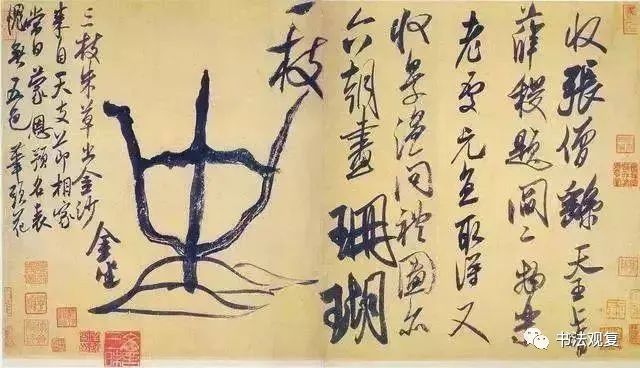 收張僧繇天王上有
薛稷題閻二物樂
老處元直取得又
收景溫問禮圖亦
六朝畫珊瑚
一枝
金坐
三枝朱草出金沙
來自天支節相家
當日蒙恩預名表
愧無五色筆頭花
书法观复